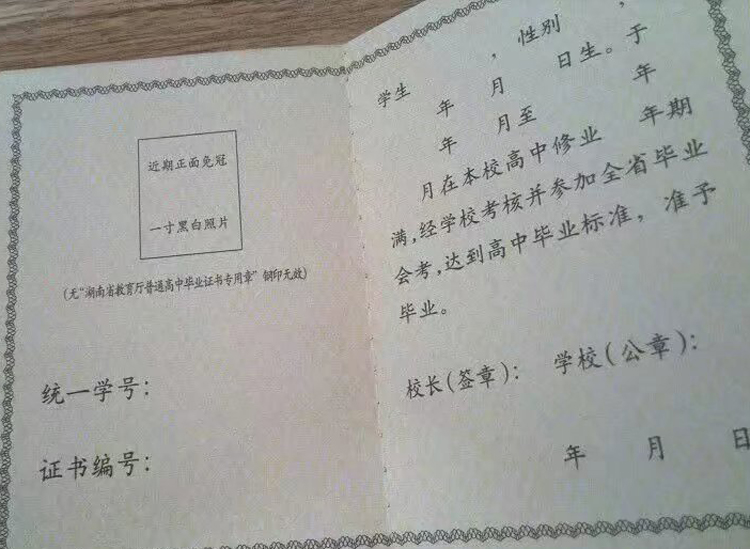 近期正面免冠
一寸黑白照片
(无“湖南省教育厅普通高中毕业证书专用章”钢印无效)
统一学号：
证书编号：
学生 ，性别 ，
年 月 日生。于
年 月至 年
月在本校高中修业 年期
满,经学校考核并参加全省毕业
会考,达到高中毕业标准，准予
毕业。
校长(签章)： 学校(公章)：
年 月 日